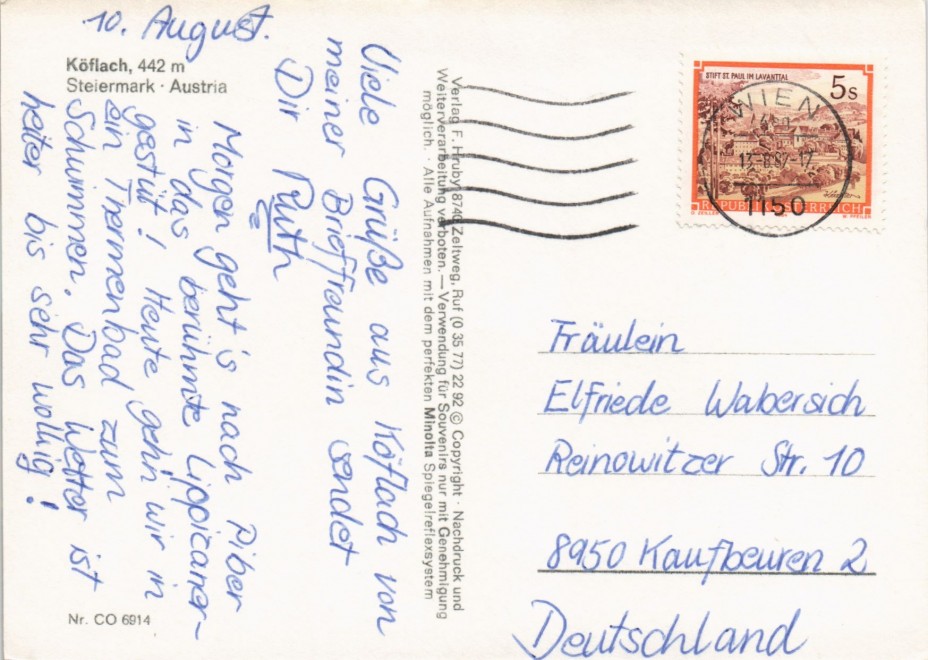 10. August.
Köflach, 442 m
Steiermark · Austria
Viele Grüße aus Köflach von
meiner Brieffreundin sendet
Dir Ruth
Morgen geht's nach Piber
in das berühmte Lippizaner-
gestüt! Heute geh'n wir in
ein Thermenbad zum
Schwimmen. Das Wetter ist
heiter bis sehr wollig!
Nr. CO 6914
Verlag F. Hruby, 8740 Zeltweg, Ruf (0 35 77) 22 92 © Copyright · Nachdruck und
Weiterverarbeitung verboten. — Verwendung für Souvenirs nur mit Genehmigung
möglich. · Alle Aufnahmen mit dem perfekten Minolta Spiegelreflexsystem
STIFT ST. PAUL IM LAVANTTAL
5 S
REPUBLIK ÖSTERREICH
WIEN
13.-8.87-17
1150
Fräulein
Elfriede Wabersich
Reinowitzer Str. 10
8950 Kaufbeuren 2
Deutschland